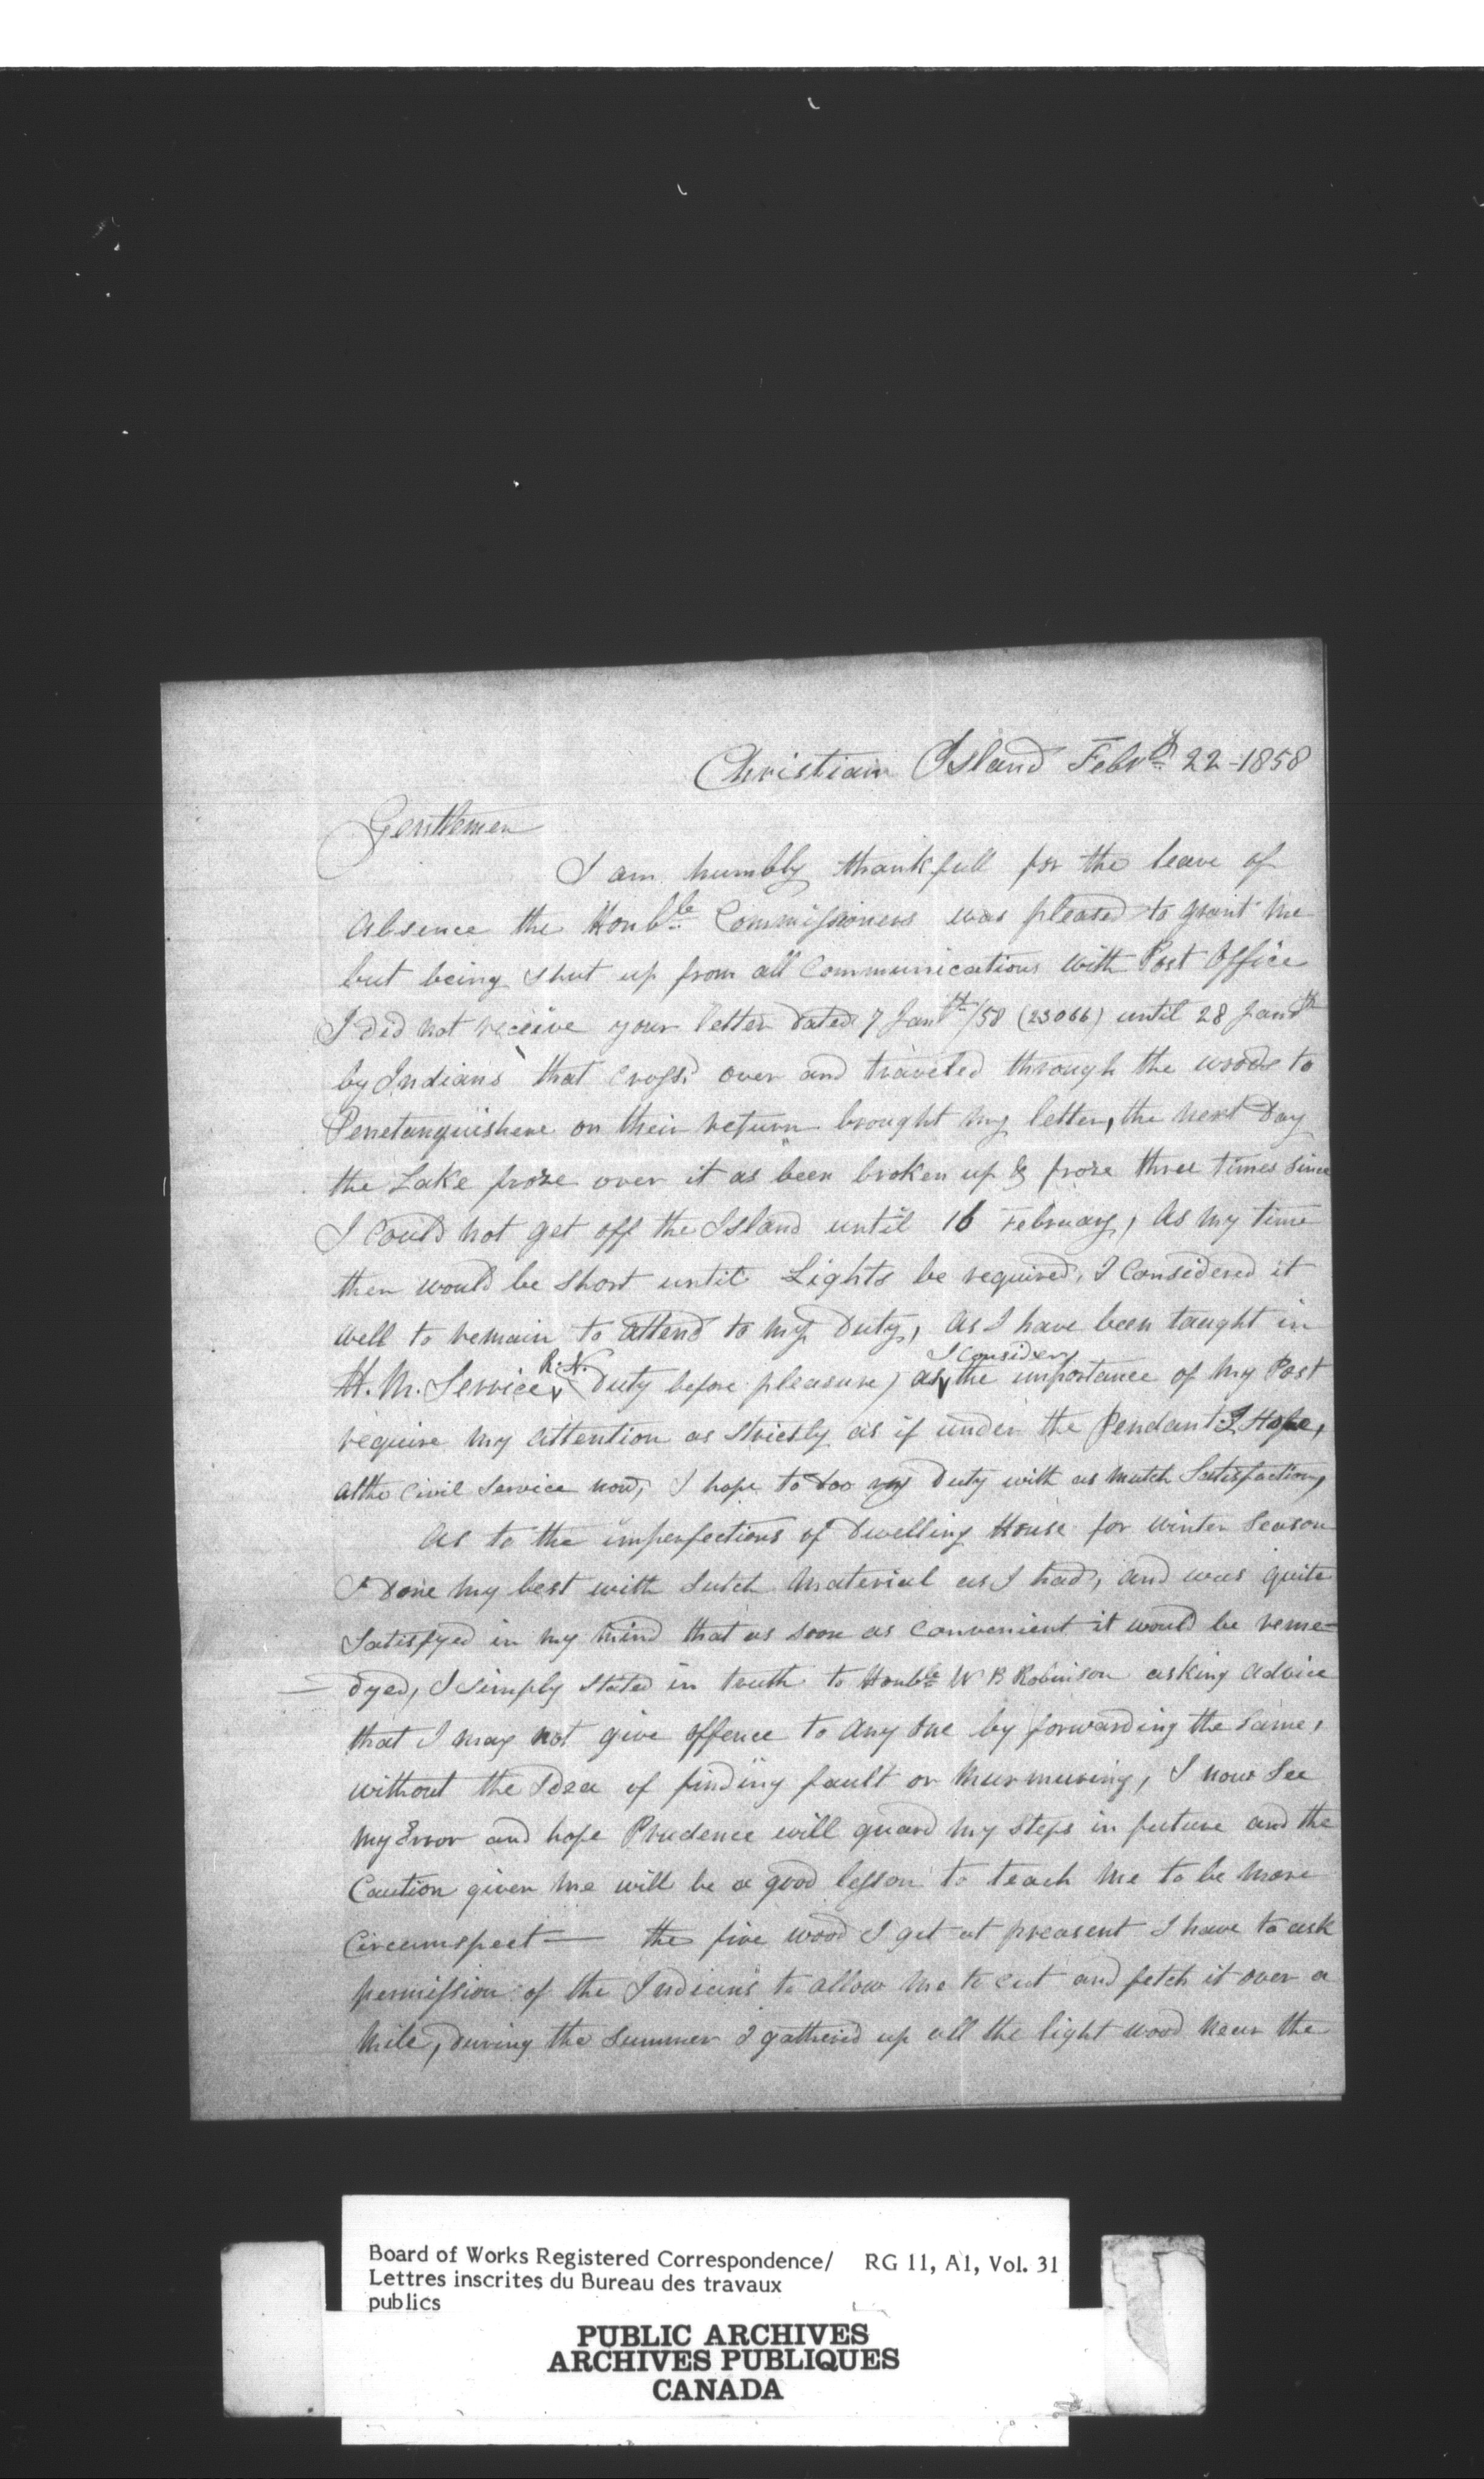 Christian Island Febry 22-1858
Gentlemen
I am humbly thankfull for the leave of
absence the Honble Commissioners was pleased to grant me
but being shut up from all Communications with Post Office
I did not receive your letter dated 7 Janth/58 (23066) until 28 Janth
by Indians that crossd over and traveled through the woods to
Penetanguishene on their return brought my letter, the next Day
the Lake froze over it as been broken up & froze three times since
I could not get off the Island until 16 February, As my time
then would be short until Lights be required, I Considered it
well to remain to attend to my Duty, as I have been taught in
H. M. Service R. N. (Duty before pleasure) as I consider the importance of my Post
require my attention as strictly as if under the Pendant I Hope,
at the Civil Service now, I hope to doo my Duty with as mutch Satisfaction,
As to the imperfections of Dwelling House for winter Season
I Done my best with sutch material as I had, and was quite
Satisfyed in my mind that as soon as convenient it would be reme-
dyed, I simply stated in truth to Honble W B Robinson asking advice
that I may not give offence to any one by forwarding the same,
without the Idea of finding fault or murmuring, I now See
my Error and hope Prudence will guard my steps in future and the
Caution given me will be a good lesson to teach me to be more
Circumspect — the fire wood I get at preasent I have to ask
permission of the Indians to allow me to cut and fetch it over a
mile, during the Summer I gathered up all the light wood near the
Board of Works Registered Correspondence/ RG 11, A1, Vol. 31
Lettres inscrites du Bureau des travaux
publics
PUBLIC ARCHIVES
ARCHIVES PUBLIQUES
CANADA